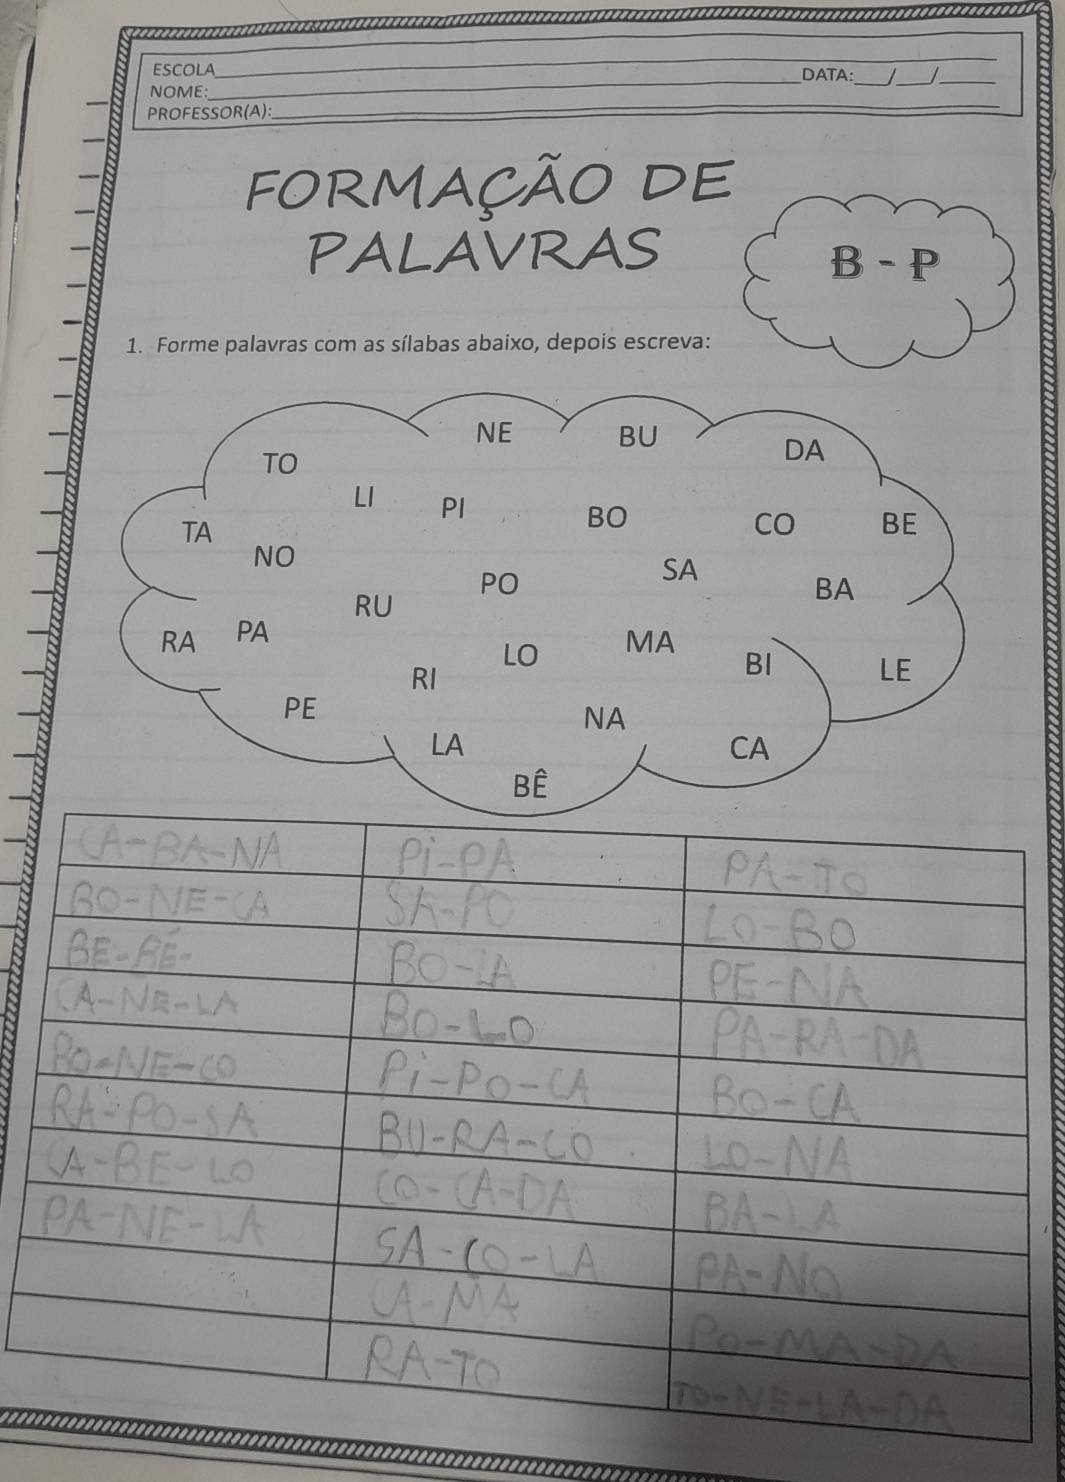 ESCOLA
NOME: DATA: / /
PROFESSOR(A):
FORMAÇÃO DE
PALAVRAS
B - P
1. Forme palavras com as sílabas abaixo, depois escreva:
NE BU
TO DA
LI PI BO CO BE
TA
NO PO SA BA
RU
RA PA LO MA BI LE
RI
PE NA
LA CA
BÊ
CA-BA-NA PI-PA PA-TO
BO-NE-CA SA-PO LO-BO
BE-BÊ- BO-LA PE-NA
CA-NE-LA BO-LO PA-RA-DA
BO-NE-CO PI-PO-CA BO-CA
RA-PO-SA BU-RA-CO LO-NA
CA-BE-LO CO-CA-DA BA-LA
PA-NE-LA SA-CO-LA PA-NO
CA-MA PO-MA-DA
RA-TO TO-NE-LA-DA